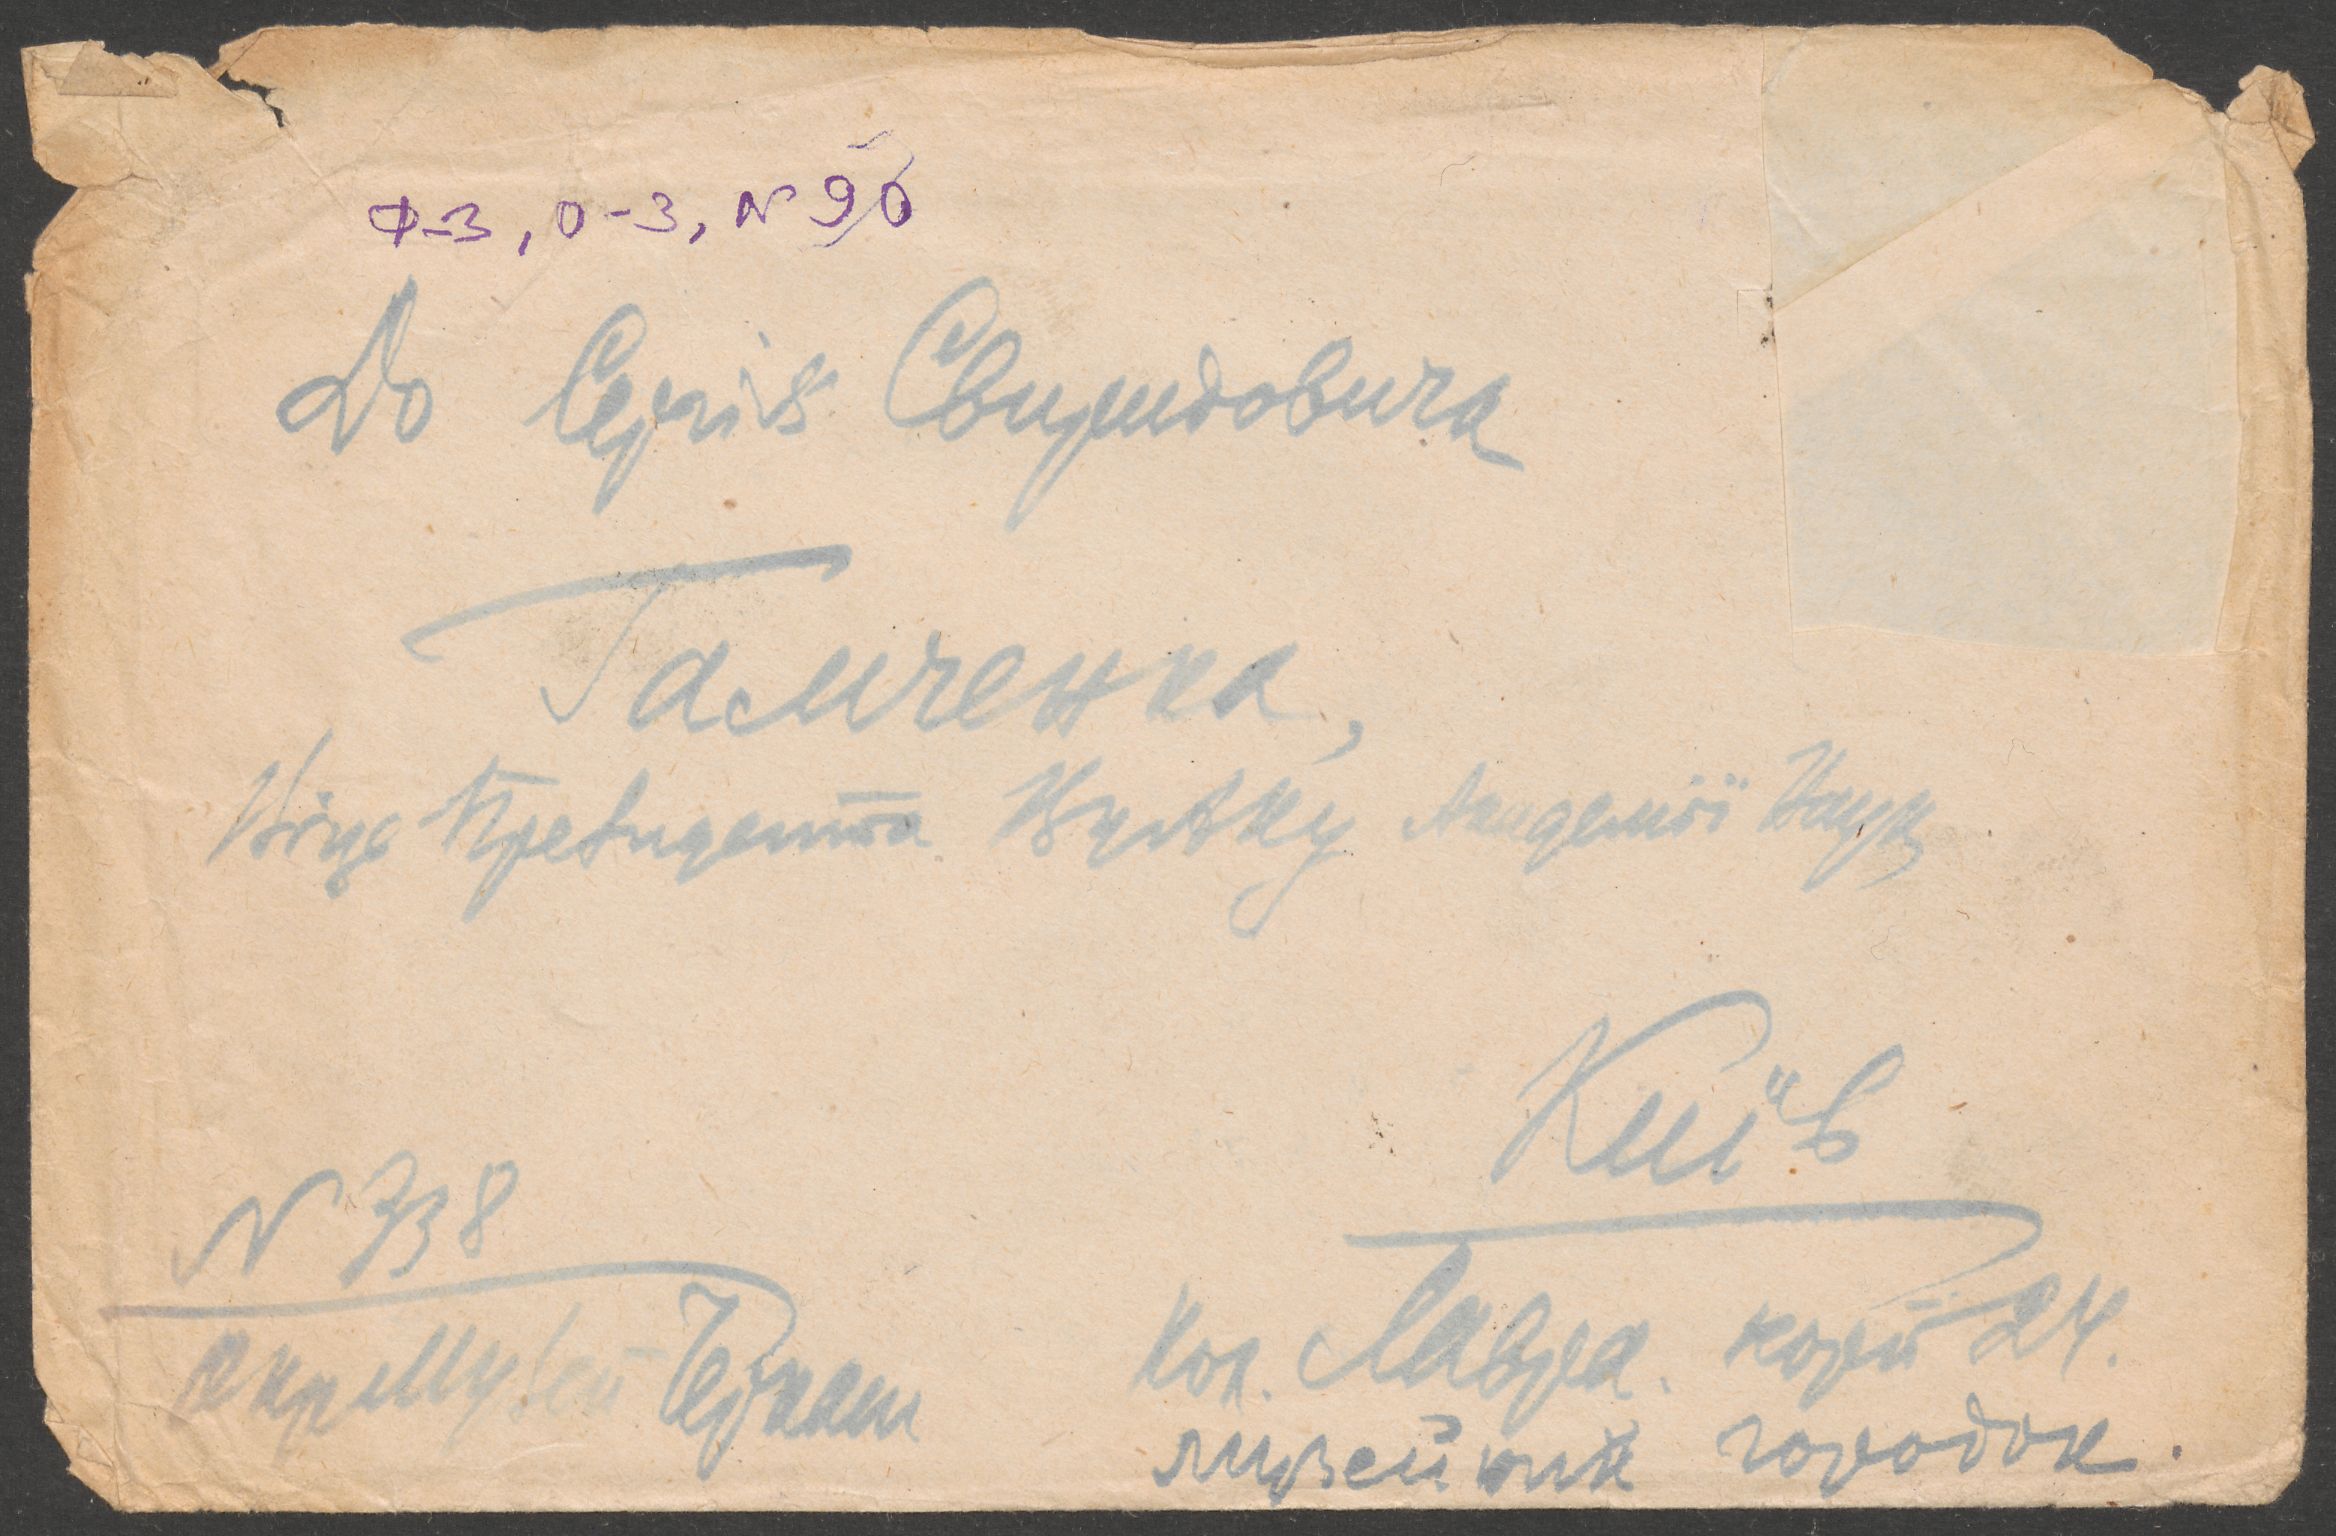 Ф-3, О-3, N 96
До Сергія Свиридовича
Гамченка,
Віце Президента ВУАКу Академії Наук
Київ
N 738
окр Музей Черкаси
Кол. Лавра. корп 24.
музейний городок.